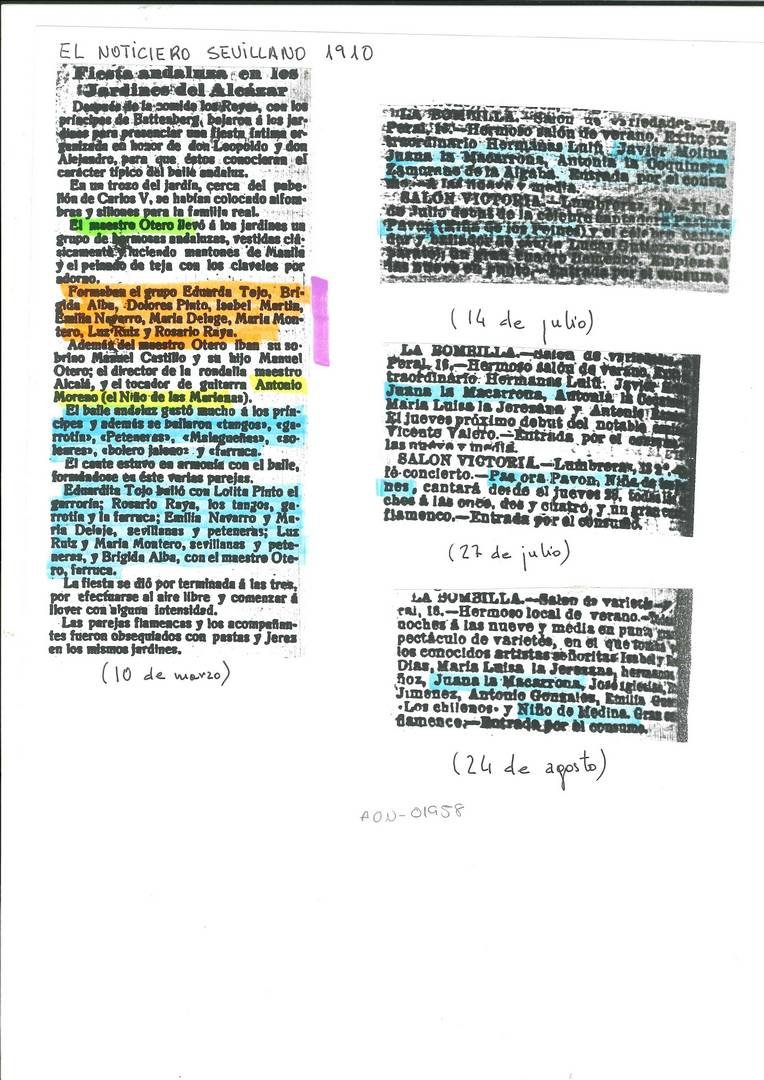 EL NOTICIERO SEVILLANO 1910
Fiesta andaluza en los
Jardines del Alcázar
Después de la comida los Reyes, con los
príncipes de Battenberg, bajaron á los jar-
dines para presenciar una fiesta íntima or-
ganizada en honor de don Leopoldo y don
Alejandro, para que éstos conocieran el
carácter típico del baile andaluz.
En un trozo del jardín, cerca del pabe-
llón de Carlos V, se habían colocado alfom-
bras y sillones para la familia real.
El maestro Otero llevó á los jardines un
grupo de hermosas andaluzas, vestidas clá-
sicamente y luciendo mantones de Manila
y el peinado de teja con los claveles por
adorno.
Formaban el grupo Eduarda Tejo, Bri-
gida Alba, Dolores Pinto, Isabel Martín,
Emilia Navarro, María Deloge, María Mon-
tero, Luz Ruiz y Rosario Raya.
Además del maestro Otero iban su so-
brino Manuel Castillo y su hijo Manuel
Otero; el director de la rondalla maestro
Alcalá, y el tocador de guitarra Antonio
Moreno (el Niño de las Marianas).
El baile andaluz gustó mucho á los prín-
cipes y además se bailaron «tangos», «ga-
rrotín», «Peteneras», «Malagueñas», «so-
leares», «bolero jaleao» y «farruca.
El cante estuvo en armonía con el baile,
formándose en éste varias parejas.
Eduardita Tejo bailó con Lolita Pinto el
garrotín; Rosario Raya, los tangos, ga-
rrotín y la farruca; Emilia Navarro y Ma-
ría Deloje, sevillanas y peteneras; Luz
Ruiz y María Montero, sevillanas y pete-
neras, y Brígida Alba, con el maestro Ote-
ro, farruca.
La fiesta se dió por terminada á las tres,
por efectuarse al aire libre y comenzar á
llover con alguna intensidad.
Las parejas flamencas y los acompañan-
tes fueron obsequiados con pastas y Jerez
en los mismos jardines.
(10 de marzo)
LA BOMBILLA.—Salón de variedades.—16,
Peral, 16.—Hermoso salón de verano. Exito ex
traordinario Hermanas Luifi, Javier Molina
Juana la Macarrona, Antonia la Coquinera
Zamorano de la Algaba. Entrada por el consu
mo. A las nueve y media.
SALON VICTORIA.—Lumbreras, El 14
de Julio debut de la célebre cantadora Pastora
Pavón (Niña de los Peines) y el
flamenco. Empieza á
las nueve en punto.—Entrada por el consumo.
(14 de julio)
LA BOMBILLA.—Salon de
Peral, 16.—Hermoso salón de verano.
traordinario. Hermanas Luifi.
Juana la Macarrona, Antonia la
María Luisa la Jerezana y Antonio
El jueves próximo debut del notable
Vicente Valero.—Entrada por el consumo.
las nueve y media.
SALON VICTORIA.—Lumbreras,
fé-concierto.—Pastora Pavon, Niña de
nes, cantará desde el jueves
ches á las once, dos y cuatro, y un gran
flamenco.—Entrada por el consumo.
(27 de julio)
LA BOMBILLA.—Salon de
ral, 16.—Hermoso local de verano.
noches á las nueve y media en punto
pectáculo de varietés, en el que toman
los conocidos artistas señoritas Isabel
Dias, María Luisa la Jerezana,
ñoz, Juana la Macarrona, José Iglesias,
Jimenez, Antonio Gonzales, Emilia
«Los chilenos» y Niño de Medina. Gran
flamenco.—Entrada por el consumo.
(24 de agosto)
AON-01958